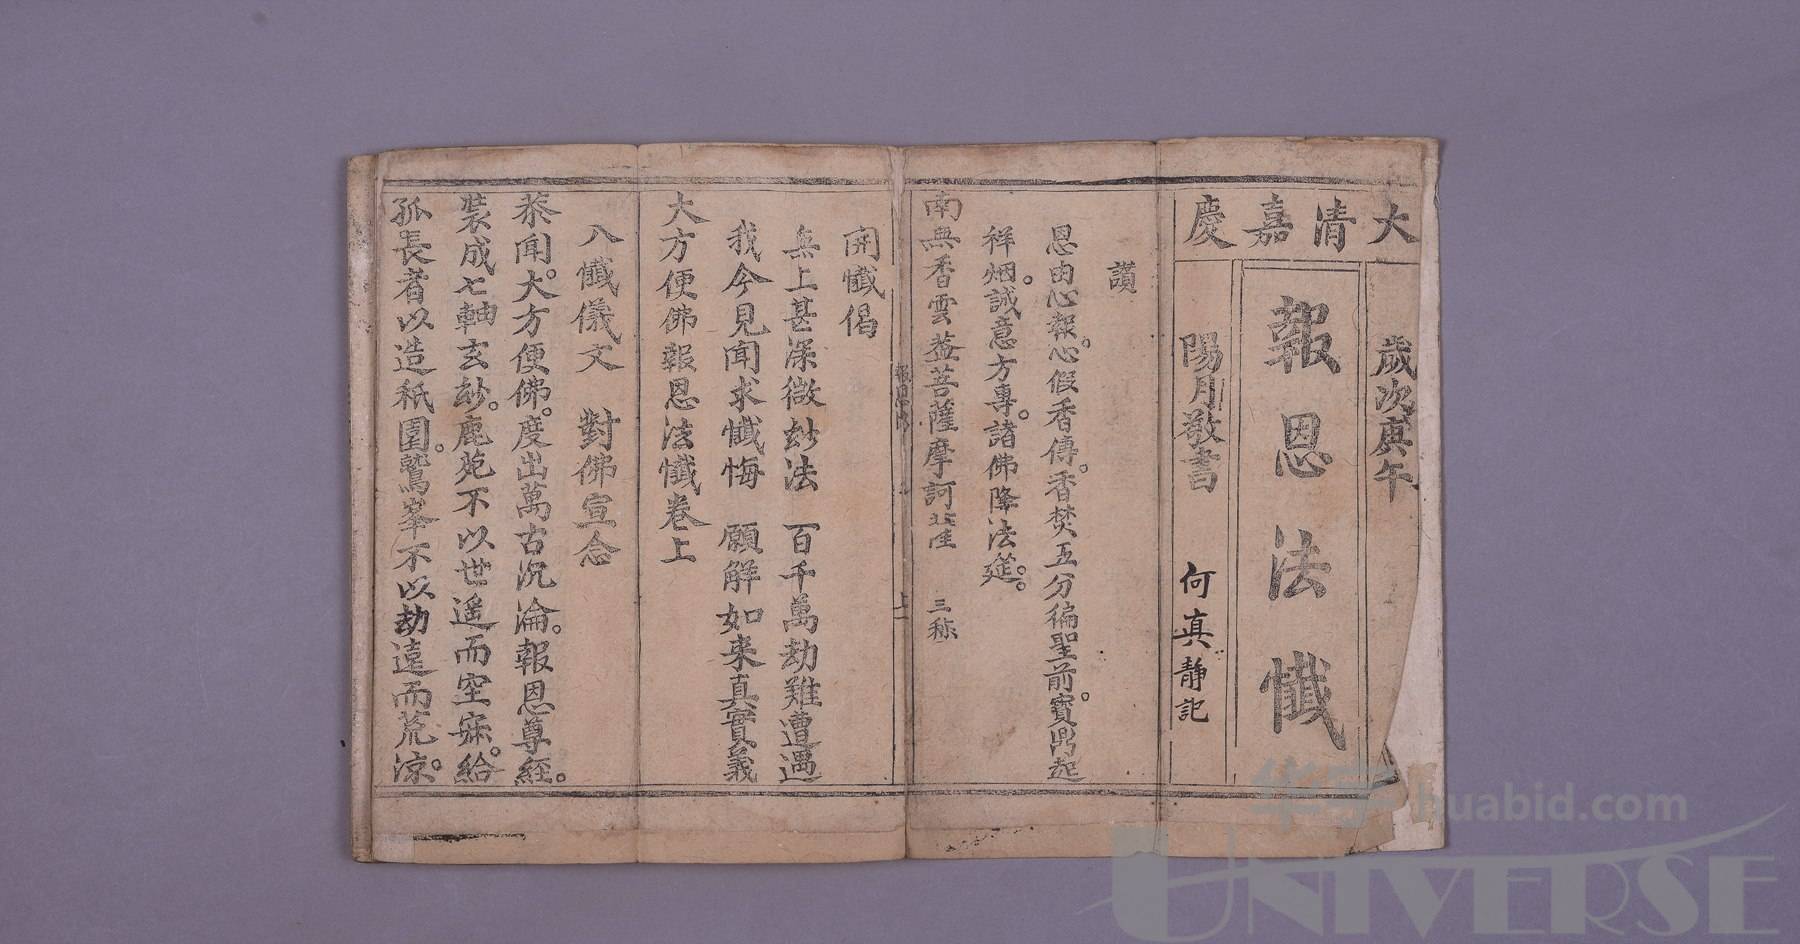 大清嘉慶
歲次庚午
報恩法懺
陽月敬書 何真靜記
讚
恩由心報。心假香傳。香焚五分徧聖前。寶鼎起
祥烟。誠意方專。諸佛降法筵。
南無香雲蓋菩薩摩訶薩 三称
報恩
開懺偈
無上甚深微玅法 百千萬劫難遭遇
我今見聞求懺悔 願解如来真實義
大方便佛報恩法懺卷上
入懺儀文 對佛宣念
恭聞。大方便佛。度出萬古沉淪。報恩尊經。
裝成七軸玄玅。鹿苑不以世遥而空寐。給
孤長者以造祇園。鷲峯不以劫遠而荒涼。
华宇 huabid.com
UNIVERSE